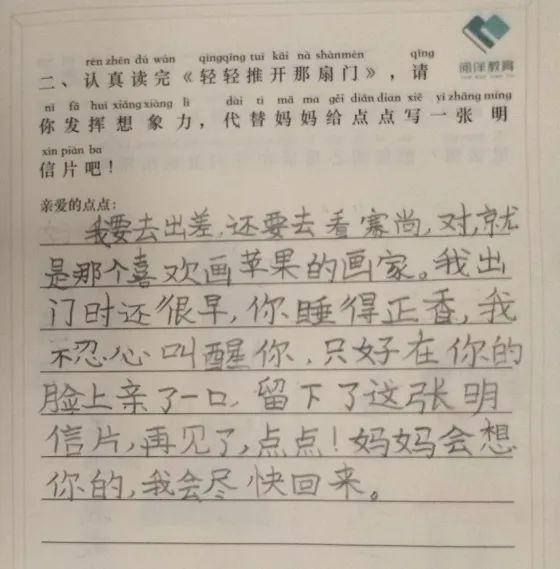 rèn zhēn dú wán qīngqīng tuī kāi nà shànmén qǐng
二、认真读完《轻轻推开那扇门》，请
nǐ fā huī xiǎng xiàng lì dài tì mā ma gěi diǎn dian xiě yì zhāng míng
你发挥想象力，代替妈妈给点点写一张明
xìn piàn ba
信片吧！
亲爱的点点：
我要去出差，还要去看寨尚，对，就
是那个喜欢画苹果的画家。我出
门时还很早，你睡得正香，我
不忍心叫醒你，只好在你的
脸上亲了一口，留下了这张明
信片，再见了，点点！妈妈会想
你的，我会尽快回来。